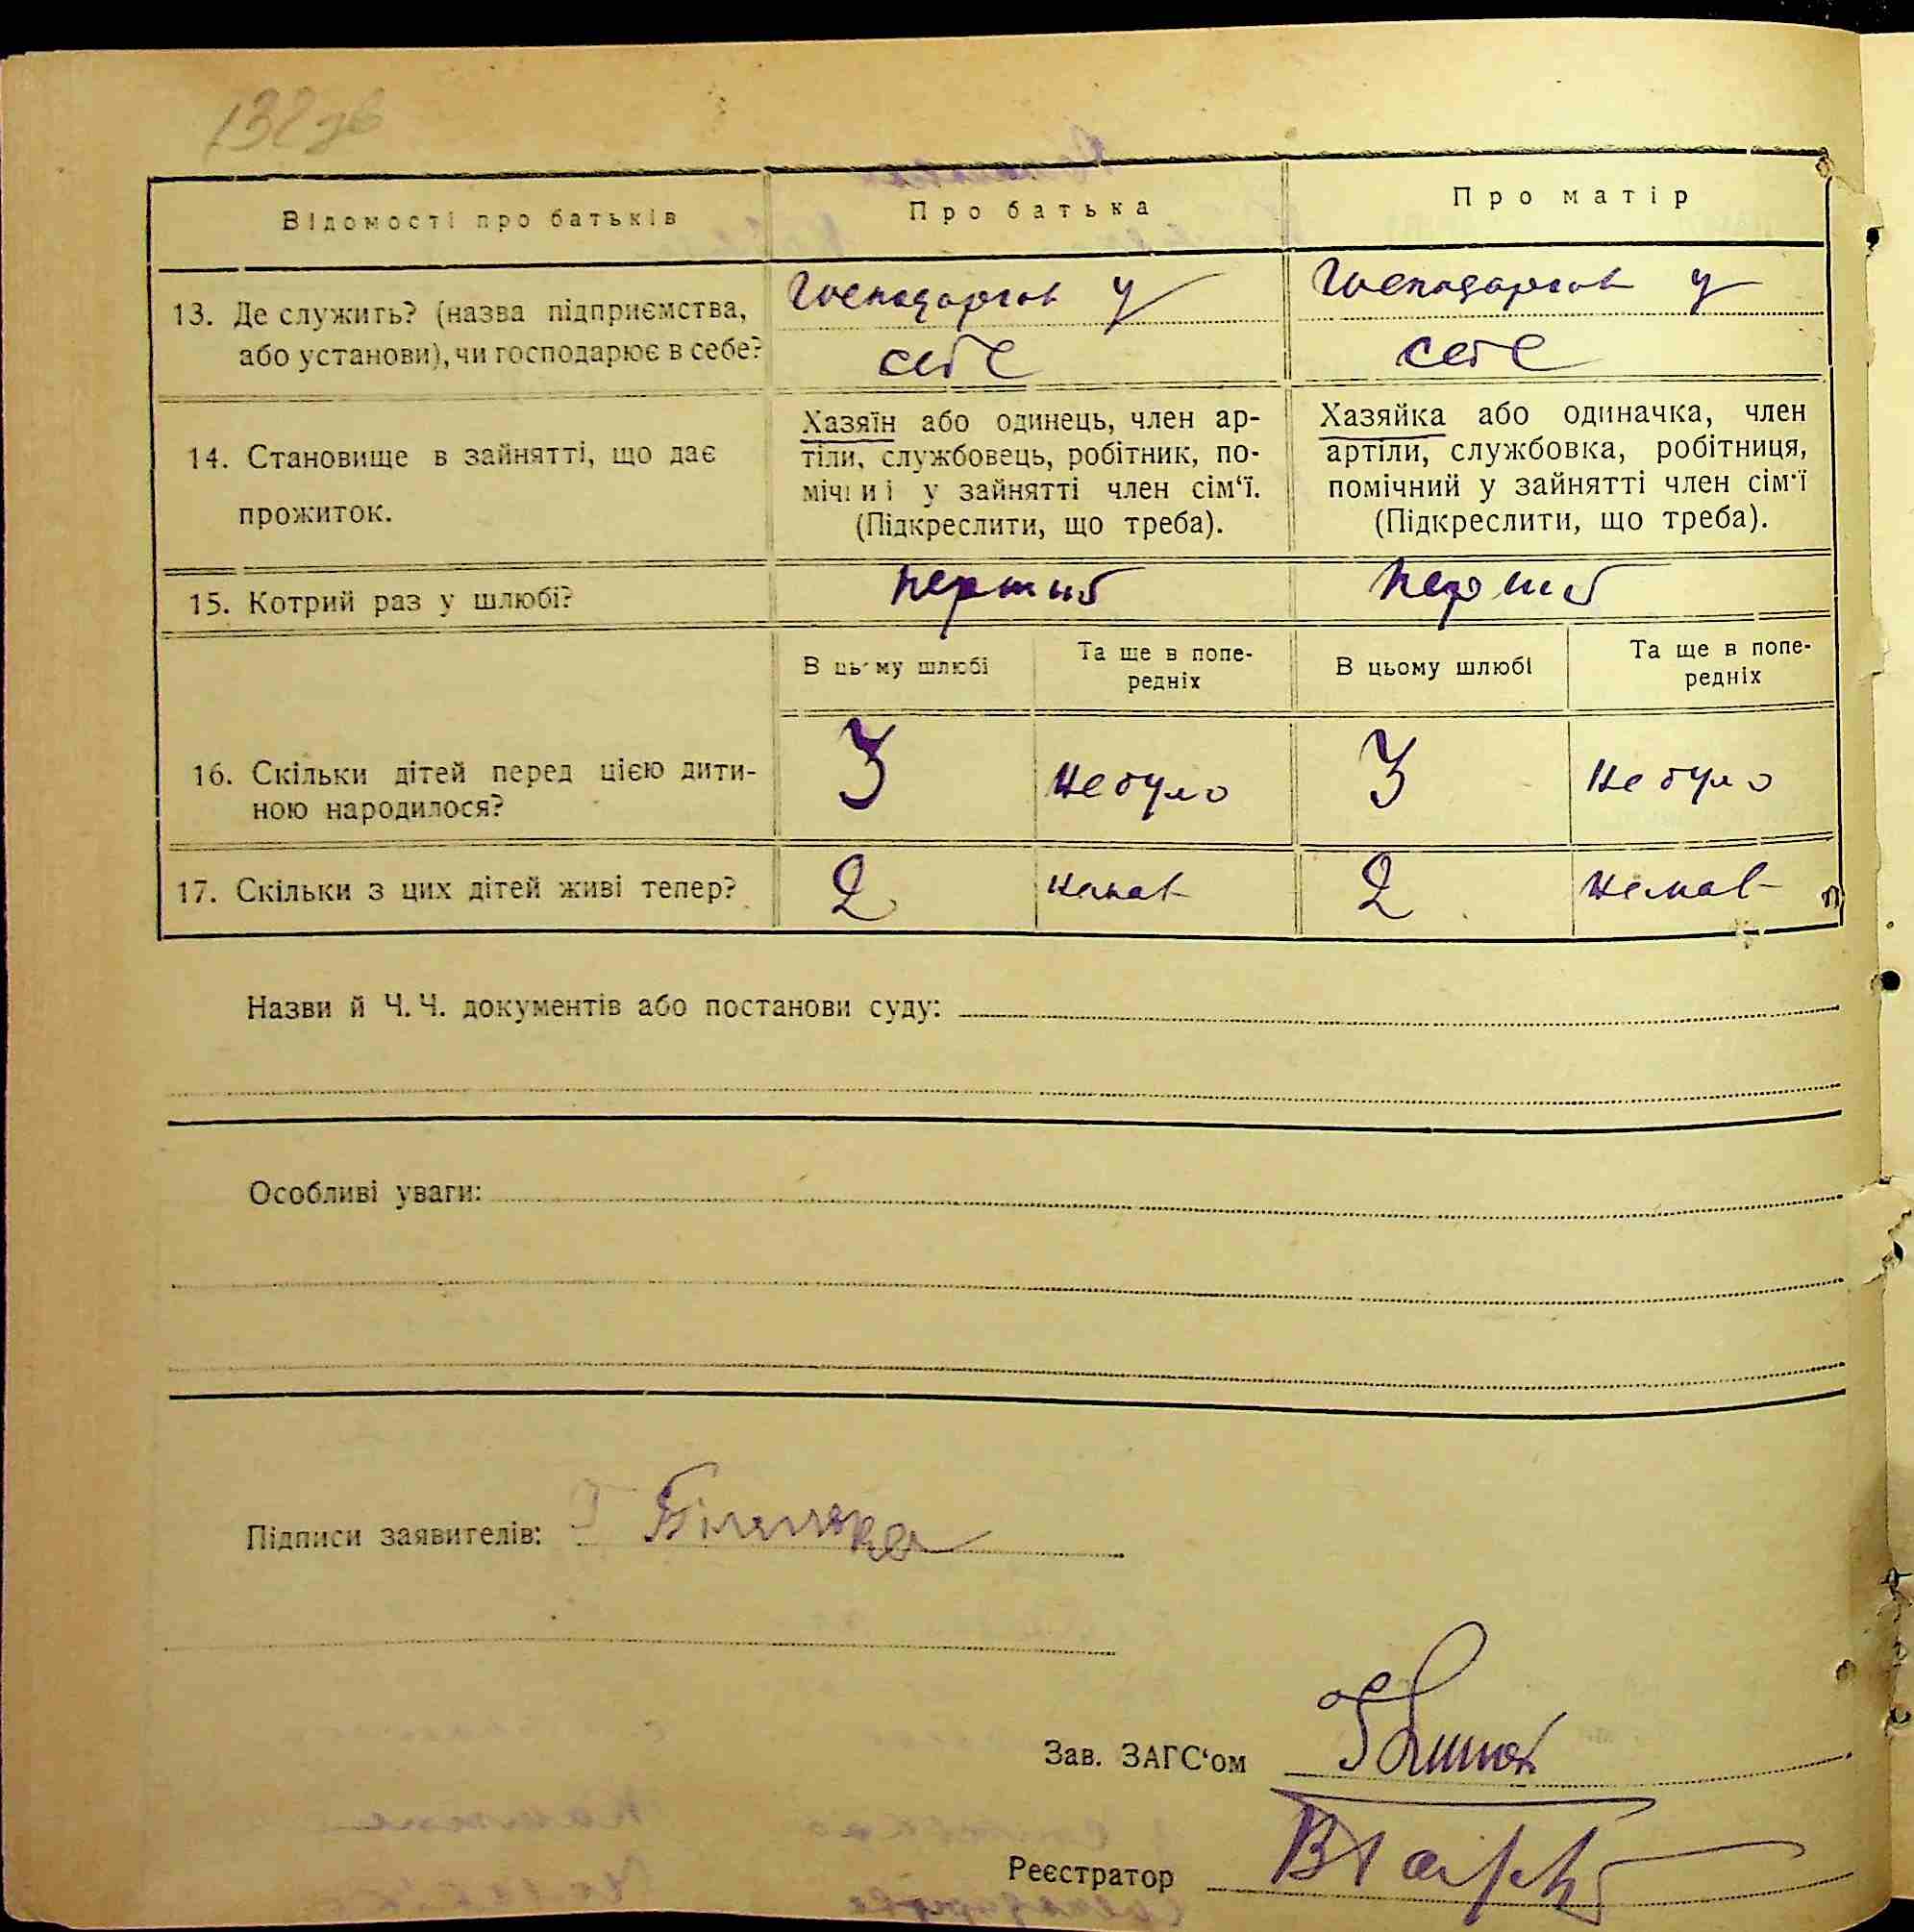 132 зв
Відомості про батьків
Про батька
Про матір
13. Де служить? (назва підприємства,
або установи), чи господарює в себе?
Господарює у
себе
Господарює у
себе
14. Становище в зайнятті, що дає
прожиток.
Хазяїн або одинець, член ар-
тіли, службовець, робітник, по-
мічний у зайнятті член сім‘ї.
(Підкреслити, що треба).
Хазяйка або одиначка, член
артіли, службовка, робітниця,
помічний у зайнятті член сім‘ї
(Підкреслити, що треба).
15. Котрий раз у шлюбі?
перший
перший
В цьому шлюбі
Та ще в попе-
редніх
В цьому шлюбі
Та ще в попе-
редніх
16. Скільки дітей перед цією дити-
ною народилося?
3
не було
3
не було
17. Скільки з цих дітей живі тепер?
2
немає
2
немає
Назви й Ч. Ч. документів або постанови суду:
Особливі уваги:
Підписи заявителів:
Зав. ЗАГС‘ом
Реєстратор